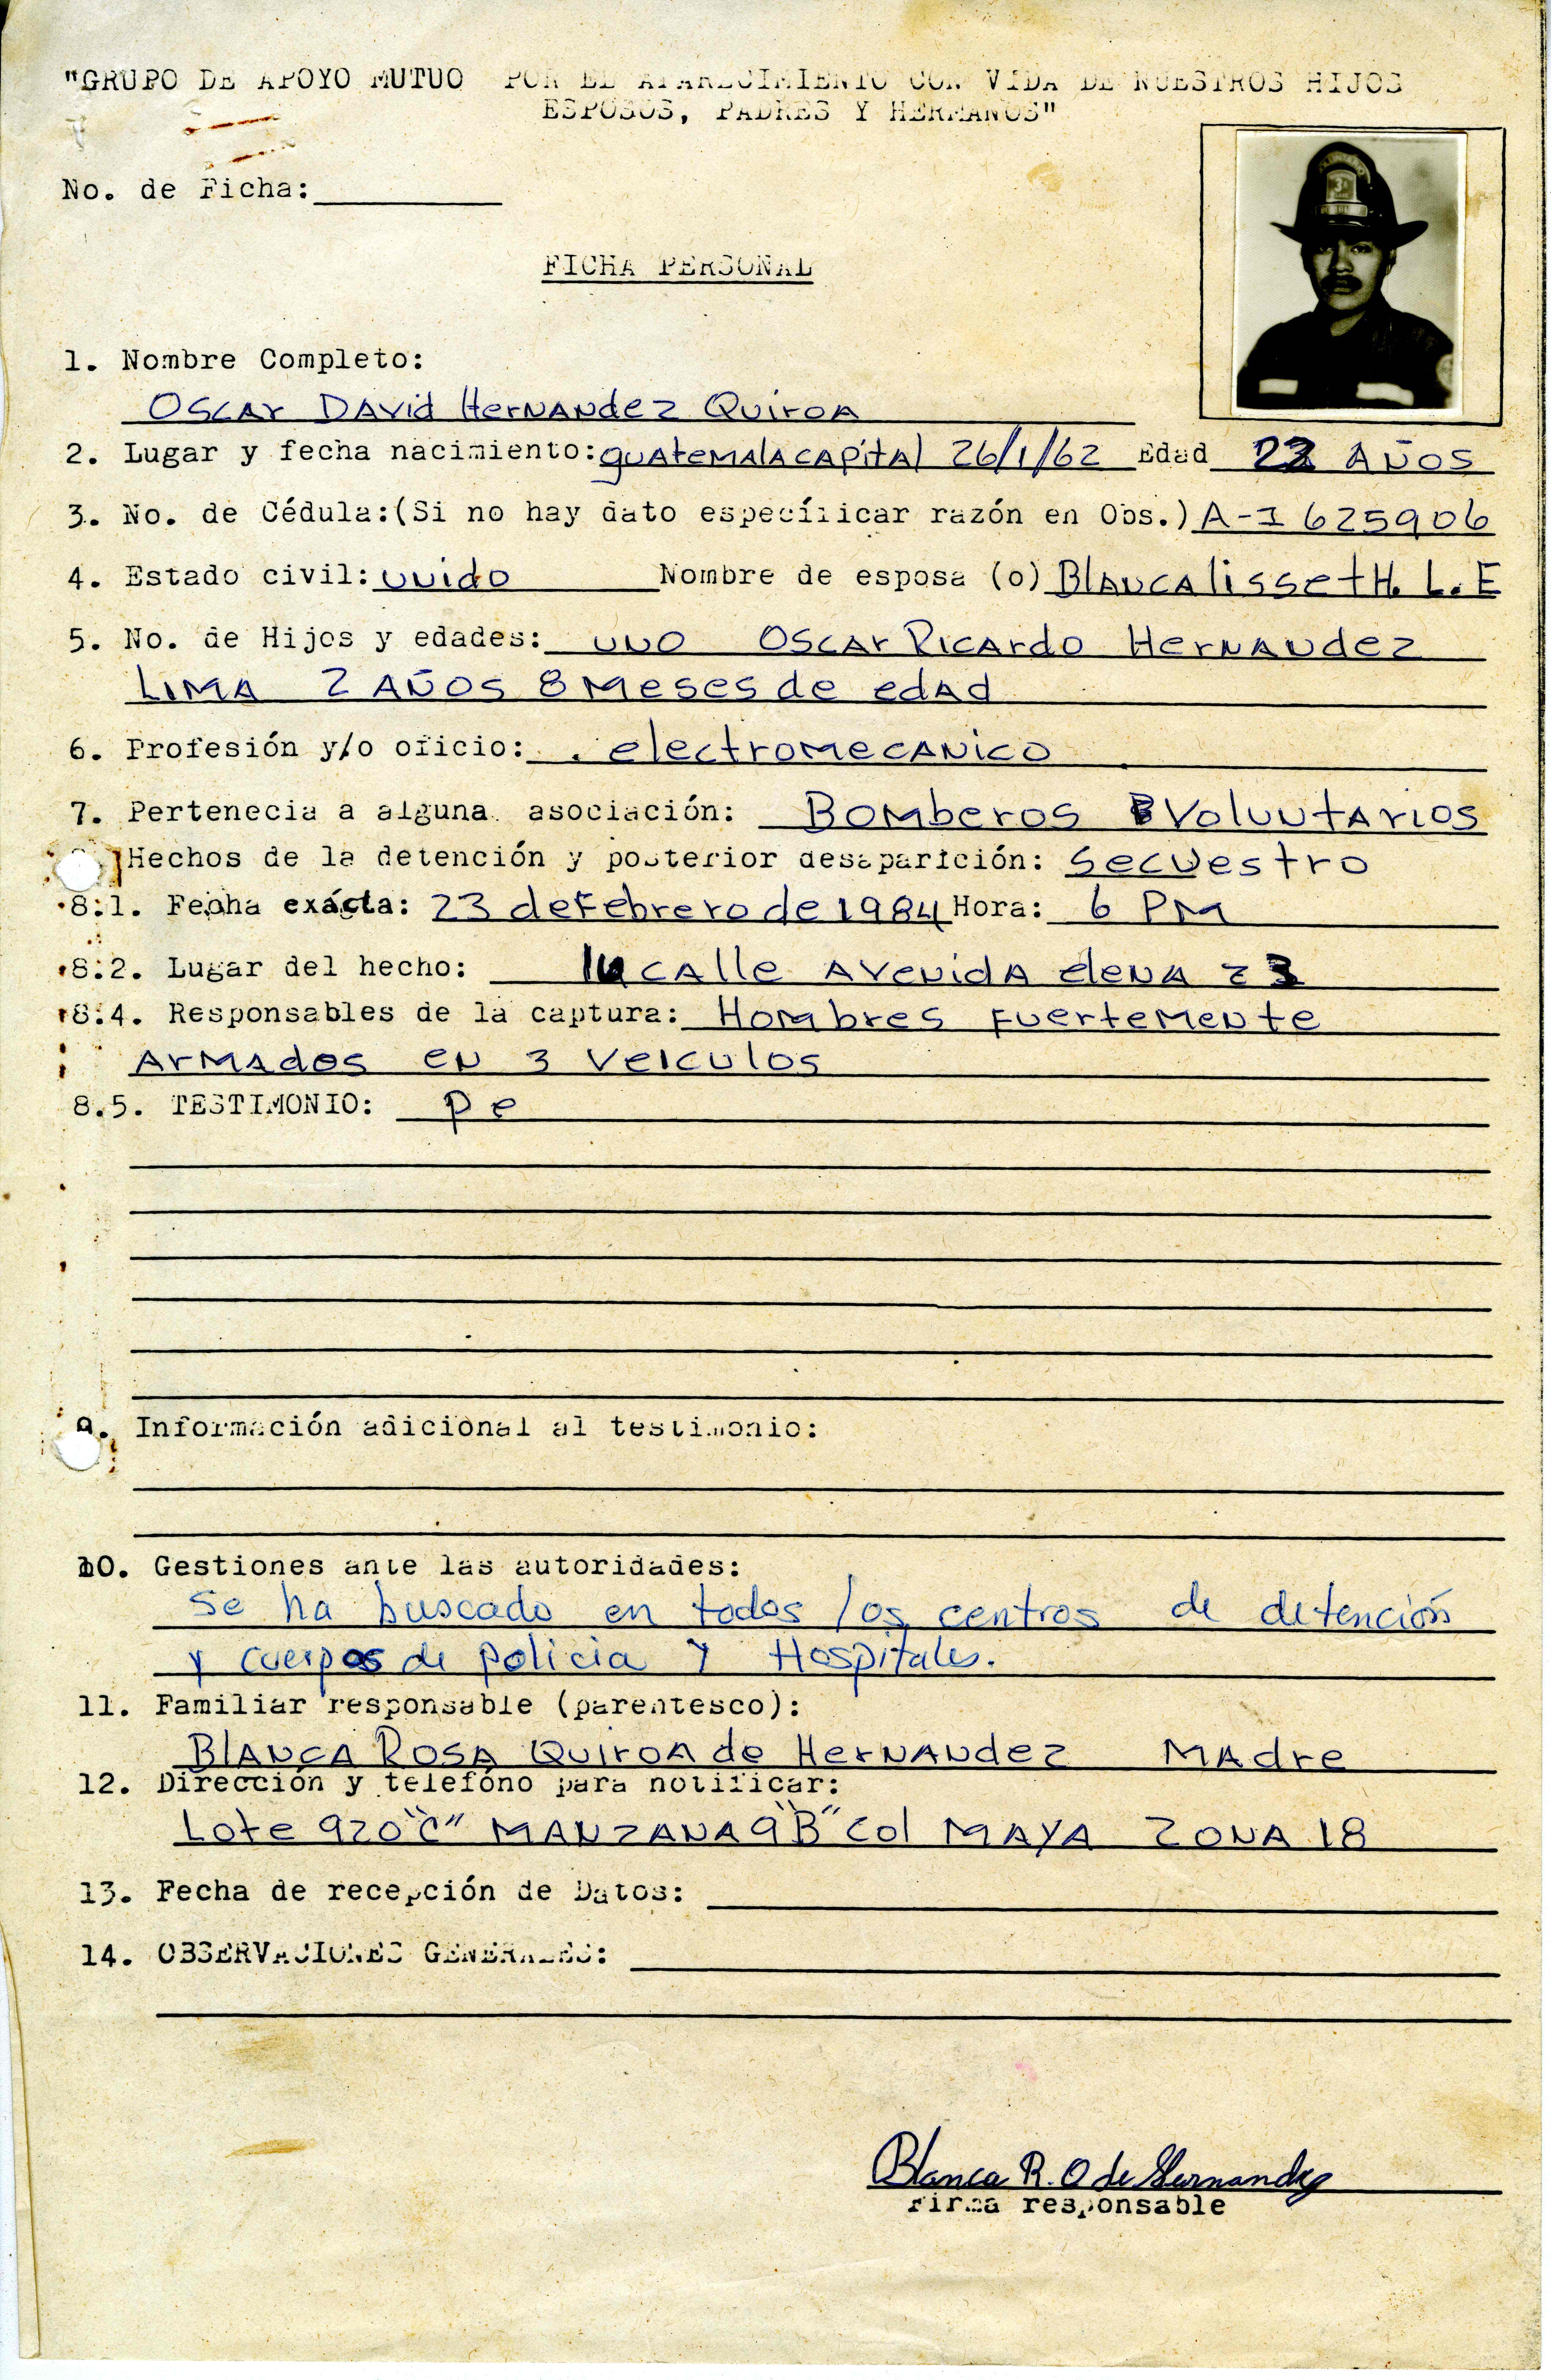 "GRUPO DE APOYO MUTUO POR EL APARECIMIENTO CON VIDA DE NUESTROS HIJOS
ESPOSOS, PADRES Y HERMANOS"
No. de Ficha:
FICHA PERSONAL
1. Nombre Completo:
Oscar David Hernandez Quiroa
2. Lugar y fecha nacimiento: guatemala capital 26/1/62 Edad 22 Años
3. No. de Cédula:(Si no hay dato específicar razón en Obs.) A-I 625906
4. Estado civil: unido Nombre de esposa (o) Blanca lisseth H. L. E
5. No. de Hijos y edades: uno Oscar Ricardo Hernandez
Lima 2 Años 8 Meses de edad
6. Profesión y/o oficio: electromecanico
7. Pertenecia a alguna asociación: Bomberos Voluntarios
Hechos de la detención y posterior desaparición: Secuestro
8:1. Fecha exácta: 23 de Febrero de 1984 Hora: 6 PM
8:2. Lugar del hecho: calle Avenida elena z 3
8:4. Responsables de la captura: Hombres Fuertemente
Armados en 3 veiculos
8.5. TESTIMONIO: pe
9. Información adicional al testimonio:
10. Gestiones ante las autoridades:
Se ha buscado en todos los centros de detención
y cuerpos de policia y Hospitales.
11. Familiar responsable (parentesco):
Blanca Rosa Quiroa de Hernandez Madre
12. Dirección y telefóno para notificar:
Lote 920 "C" Manzana 9 "B" col Maya Zona 18
13. Fecha de recepción de Datos:
14. OBSERVACIONES GENERALES:
Blanca R. Q de Hernandez
Firma responsable